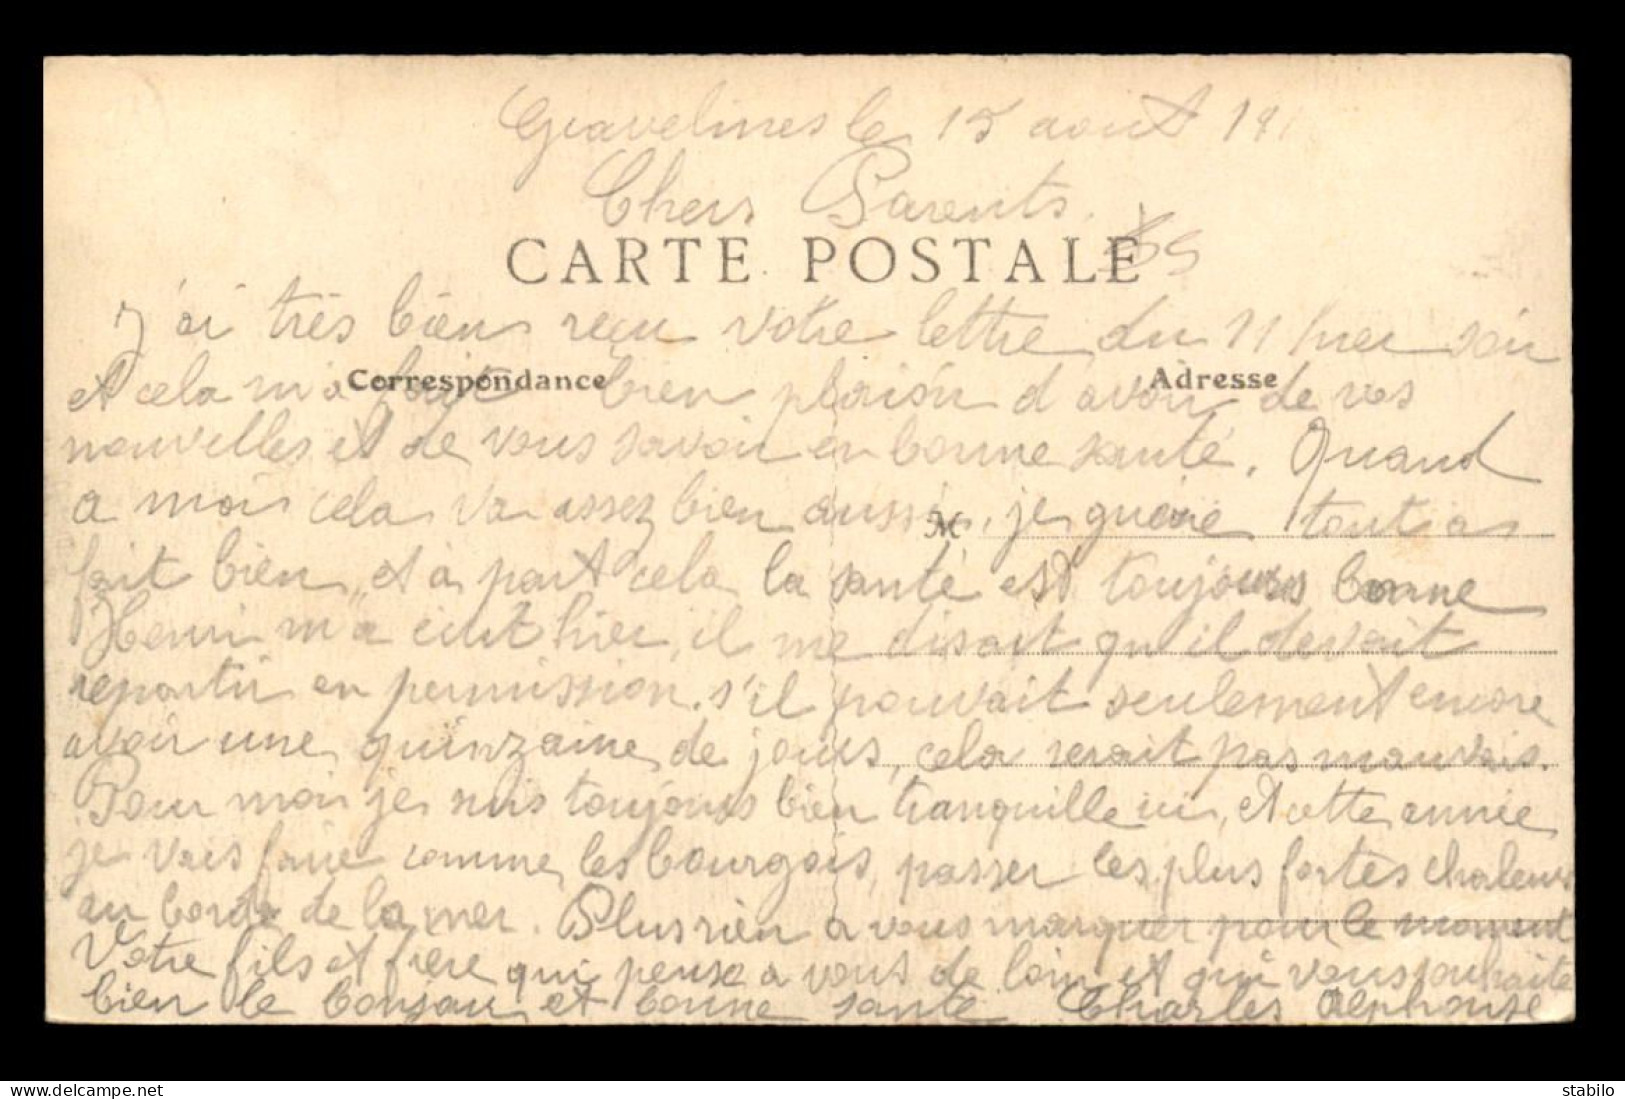 Gravelines le 15 aout 191
Chers Parents.
CARTE POSTALE
J'ai très bien reçu votre lettre du 11 hier soir
Correspondance
Adresse
et cela m'a fait bien plaisir d'avoir de vos
nouvelles et de vous savoir en bonne santé. Quand
a moi cela va assez bien aussi, je guérie tout a
M
fait bien, et à part cela la santé est toujours bonne
Henri m'a écrit hier, il me disait qu'il devait
repartir en permission. s'il pouvait seulement encore
avoir une quinzaine de jours, cela serait pas mauvais.
Pour moi je suis toujours bien tranquille ici, et cette année
je vais faire comme les bourgois, passer les plus fortes chaleurs
au bords de la mer. Plus rien a vous marquer pour le moment
Votre fils et frère qui pense a vous de loin et qui vous souhaite
bien le bonjour et bonne santé Charles Alphonse
delcampe.net
stabilo